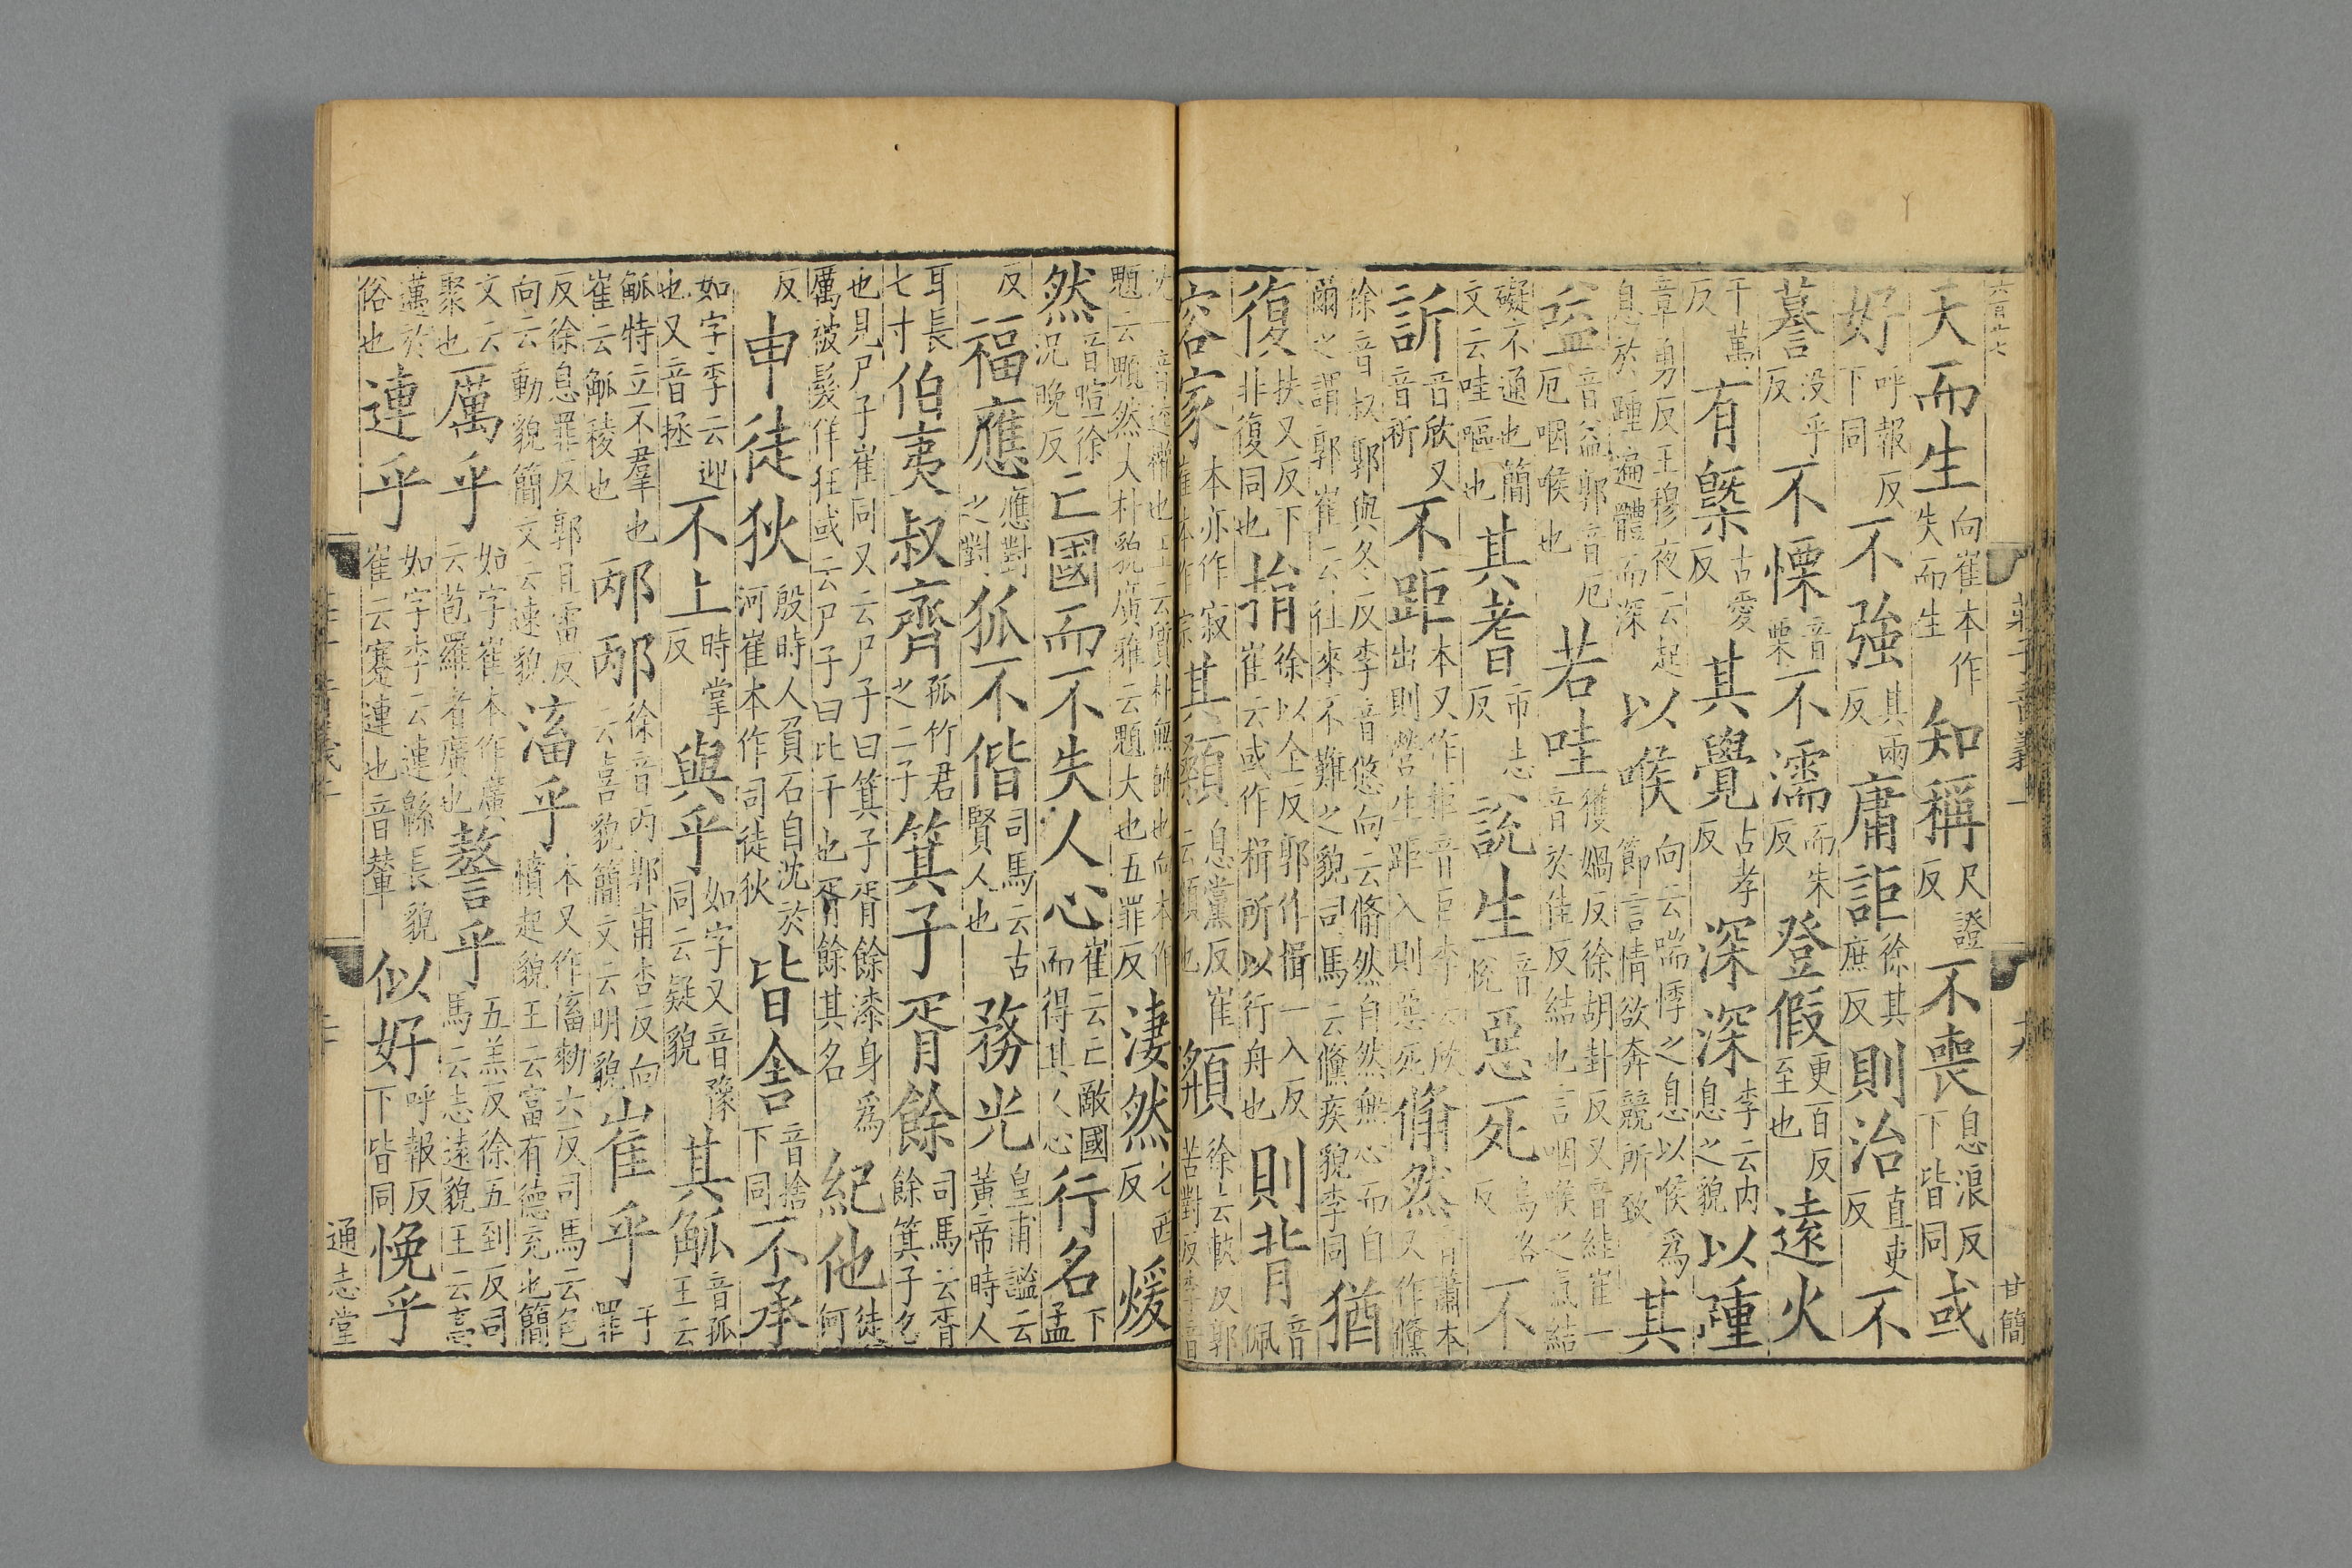 六百廿七 莊子音義一 九 甘簡
天而生向崔本作失而生知稱尺證反不喪息浪反下皆同或
好呼報反下同不強其兩反庸詎徐其庶反則治直吏反不
謩没乎反不慄音栗不濡而朱反登假更百反至也遠火
于萬反有槩古愛反其覺古孝反深深李云内息之貌以踵
章勇反王穆夜云起息於踵遍體而深以喉向云喘悸之息以喉爲節言情欲奔競所致其
嗌音益郭音厄厄咽喉也若哇獲媧反徐胡卦反又音絓崔一音於佳反結也言咽喉之氣結
礙不通也簡文云哇嘔也其耆市志反說生音悅惡死烏路反不
訢音欣又音祈不距本又作拒音巨李云欣出則營生距入則惡死翛然音蕭本又作儵
徐音叔郭與久反李音悠向云翛然自然無心而自爾之謂郭崔云往來不難之貌司馬云儵疾貌李同猶
復扶又反下非復同也捐徐以全反郭作揖一入反崔云或作楫所以行舟也則背音佩
容家本亦作寂崔本作宗其顙息黨反崔云顙也頯徐去軌反郭苦對反李音
一音逵權也王云質朴無飾也向本作題云題然大朴貌廣雅云題大也五罪反淒然七西反煖
然音暄徐況晚反亡國而不失人心崔云亡敵國而得其人心行名下孟
反福應應對之對狐不偕司馬云古賢人也務光皇甫謐云黃帝時人
耳長七寸伯夷叔齊孤竹君之二子箕子胥餘司馬云胥餘箕子名
也見尸子崔同又云尸子曰箕子胥餘漆身爲厲被髮佯狂或云尸子曰比干也胥餘其名紀他徒何
反申徒狄殷時人負石自沈於河崔本作司徒狄皆舍音捨下同不承
如字李云迎也又音拯不上時掌反與乎如字又音豫同云疑貌其觚音孤王云
觚特立不羣也崔云觚稜也邴邴徐音丙郭甫杏反向云喜貌簡文云明貌崔乎于罪
反徐息罪反郭且雷反向云動貌簡文云速貌滀乎本又作傗勑六反司馬云色憤起貌王云富有德充也簡
文云聚也厲乎如字崔本作廣云苞羅者廣也謷乎五羔反徐五到反司馬云志遠貌王云高
邁於俗也連乎如字李云連緜長貌崔云蹇連也音輦似好呼報反下皆同悗乎
通志堂